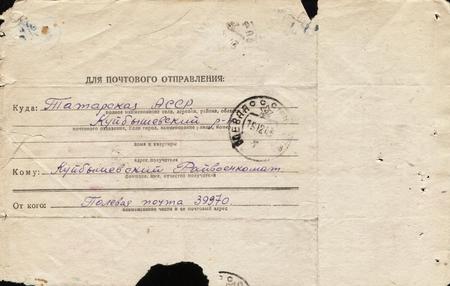 ДЛЯ ПОЧТОВОГО ОТПРАВЛЕНИЯ:
Куда: Татарская АССР
полное наименование села, деревни, района, области,
Куйбышевский р-н
почтового отделения. Если город, наименование улицы, номер
дома и квартиры
адрес получателя
Кому: Куйбышевский Райвоенкомат
фамилия, имя, отчество получателя
От кого: Полевая почта 39970
наименование части и ее почтовый адрес